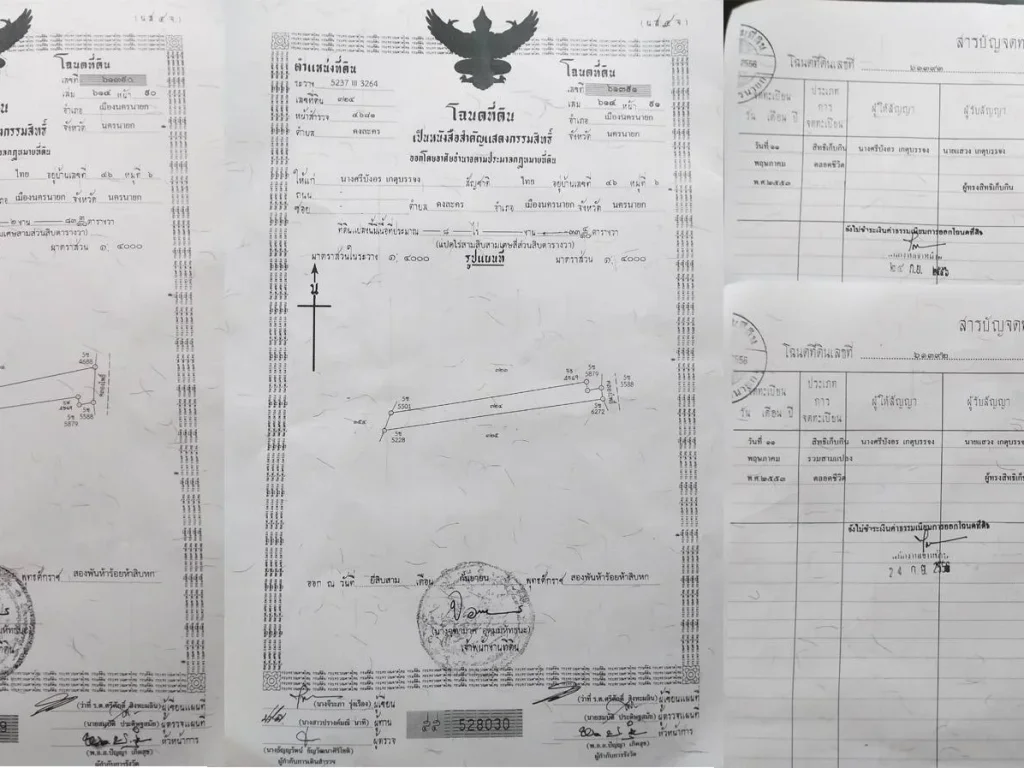 โฉนดที่ดิน
เลขที่ ๖๑๓๙๐
เล่ม ๖๑๔ หน้า ๙๐
อำเภอ เมืองนครนายก
จังหวัด นครนายก
ไทย อยู่บ้านเลขที่ ๔๖ หมู่ที่ ๖
อำเภอ เมืองนครนายก จังหวัด นครนายก
มาตราส่วน ๑: ๔๐๐๐
4688
5588
5879
พุทธศักราช สองพันห้าร้อยห้าสิบหก
(น.ส.๔ จ.)
ตำแหน่งที่ดิน
ระวาง 5237 III 3264
เลขที่ดิน ๓๒๔
หน้าสำรวจ ๔๖๘๑
ตำบล ดงละคร
โฉนดที่ดิน
เลขที่ ๖๑๓๙๑
เล่ม ๖๑๔ หน้า ๙๑
อำเภอ เมืองนครนายก
จังหวัด นครนายก
โฉนดที่ดิน
เป็นหนังสือสำคัญแสดงกรรมสิทธิ์
ออกโดยอาศัยอำนาจตามประมวลกฎหมายที่ดิน
ให้แก่ นางศรีบังอร เกตุบรรจง สัญชาติ ไทย อยู่บ้านเลขที่ ๔๖ หมู่ที่ ๖
ถนน
ซอย ตำบล ดงละคร อำเภอ เมืองนครนายก จังหวัด นครนายก
ที่ดินแปลงนี้มีเนื้อที่ประมาณ ๘ ไร่ งาน ตารางวา
(แปดไร่สามสิบสามเศษสี่ส่วนสิบตารางวา)
มาตราส่วนในระวาง ๑: ๔๐๐๐ รูปแผนที่ มาตราส่วน ๑: ๔๐๐๐
น
5501
5228
5879
5588
6272
๓๒๔
๓๒๕
ออก ณ วันที่ ยี่สิบสาม เดือน กันยายน พุทธศักราช สองพันห้าร้อยห้าสิบหก
เจ้าพนักงานที่ดิน
ผู้เขียน
ผู้ทาน
ผู้ตรวจ
528030
ผู้เขียนแผนที่
ผู้ตรวจแผนที่
หัวหน้าการ
ผู้กำกับการเดินสำรวจ
ผู้กำกับการรังวัด
สารบัญจดท
โฉนดที่ดินเลขที่ ๖๑๓๙๒
จดทะเบียน
วัน เดือน ปี
ประเภท
การ
จดทะเบียน
ผู้ให้สัญญา
ผู้รับสัญญา
วันที่ ๑๑ สิทธิเก็บกิน นางศรีบังอร เกตุบรรจง นายแสวง เกตุบรรจง
พฤษภาคม ตลอดชีวิต
พ.ศ.๒๕๕๓ ผู้ทรงสิทธิเก็บกิน
ยังไม่ชำระเงินค่าธรรมเนียมการออกโฉนดที่ดิน
๒๔ ก.ย. ๒๕๕๖
สารบัญจดท
โฉนดที่ดินเลขที่ ๖๑๓๙๒
จดทะเบียน
วัน เดือน ปี
ประเภท
การ
จดทะเบียน
ผู้ให้สัญญา
ผู้รับสัญญา
วันที่ ๑๑ สิทธิเก็บกิน นางศรีบังอร เกตุบรรจง นายแสวง เกตุบรรจง
พฤษภาคม รวมสามแปลง
พ.ศ.๒๕๕๓ ตลอดชีวิต ผู้ทรงสิทธิเก็บ
ยังไม่ชำระเงินค่าธรรมเนียมการออกโฉนดที่ดิน
24 ก.ย. 2556